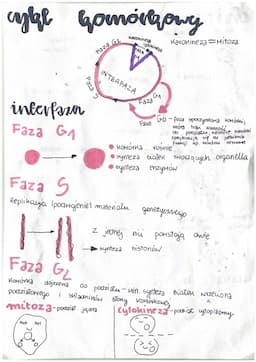 cykl komórkowy
kariokineza = mitoza
Faza G2
INTERFAZA
Faza S
Faza G1
Faza
G0 - faza spoczynkowa komórki,
interfaza
Faza G1
komórka rośnie
synteza białek tworzących organella
synteza enzymów
Faza S
Replikacja (podwojenie) materiału genetycznego
z jednej nici powstają dwie
synteza histonów
Faza G2
komórka do podziału - synteza białek wrzeciona
podziałowego i składników błony komórkowej
mitoza - podział jądra
cytokineza - podział cytoplazmy